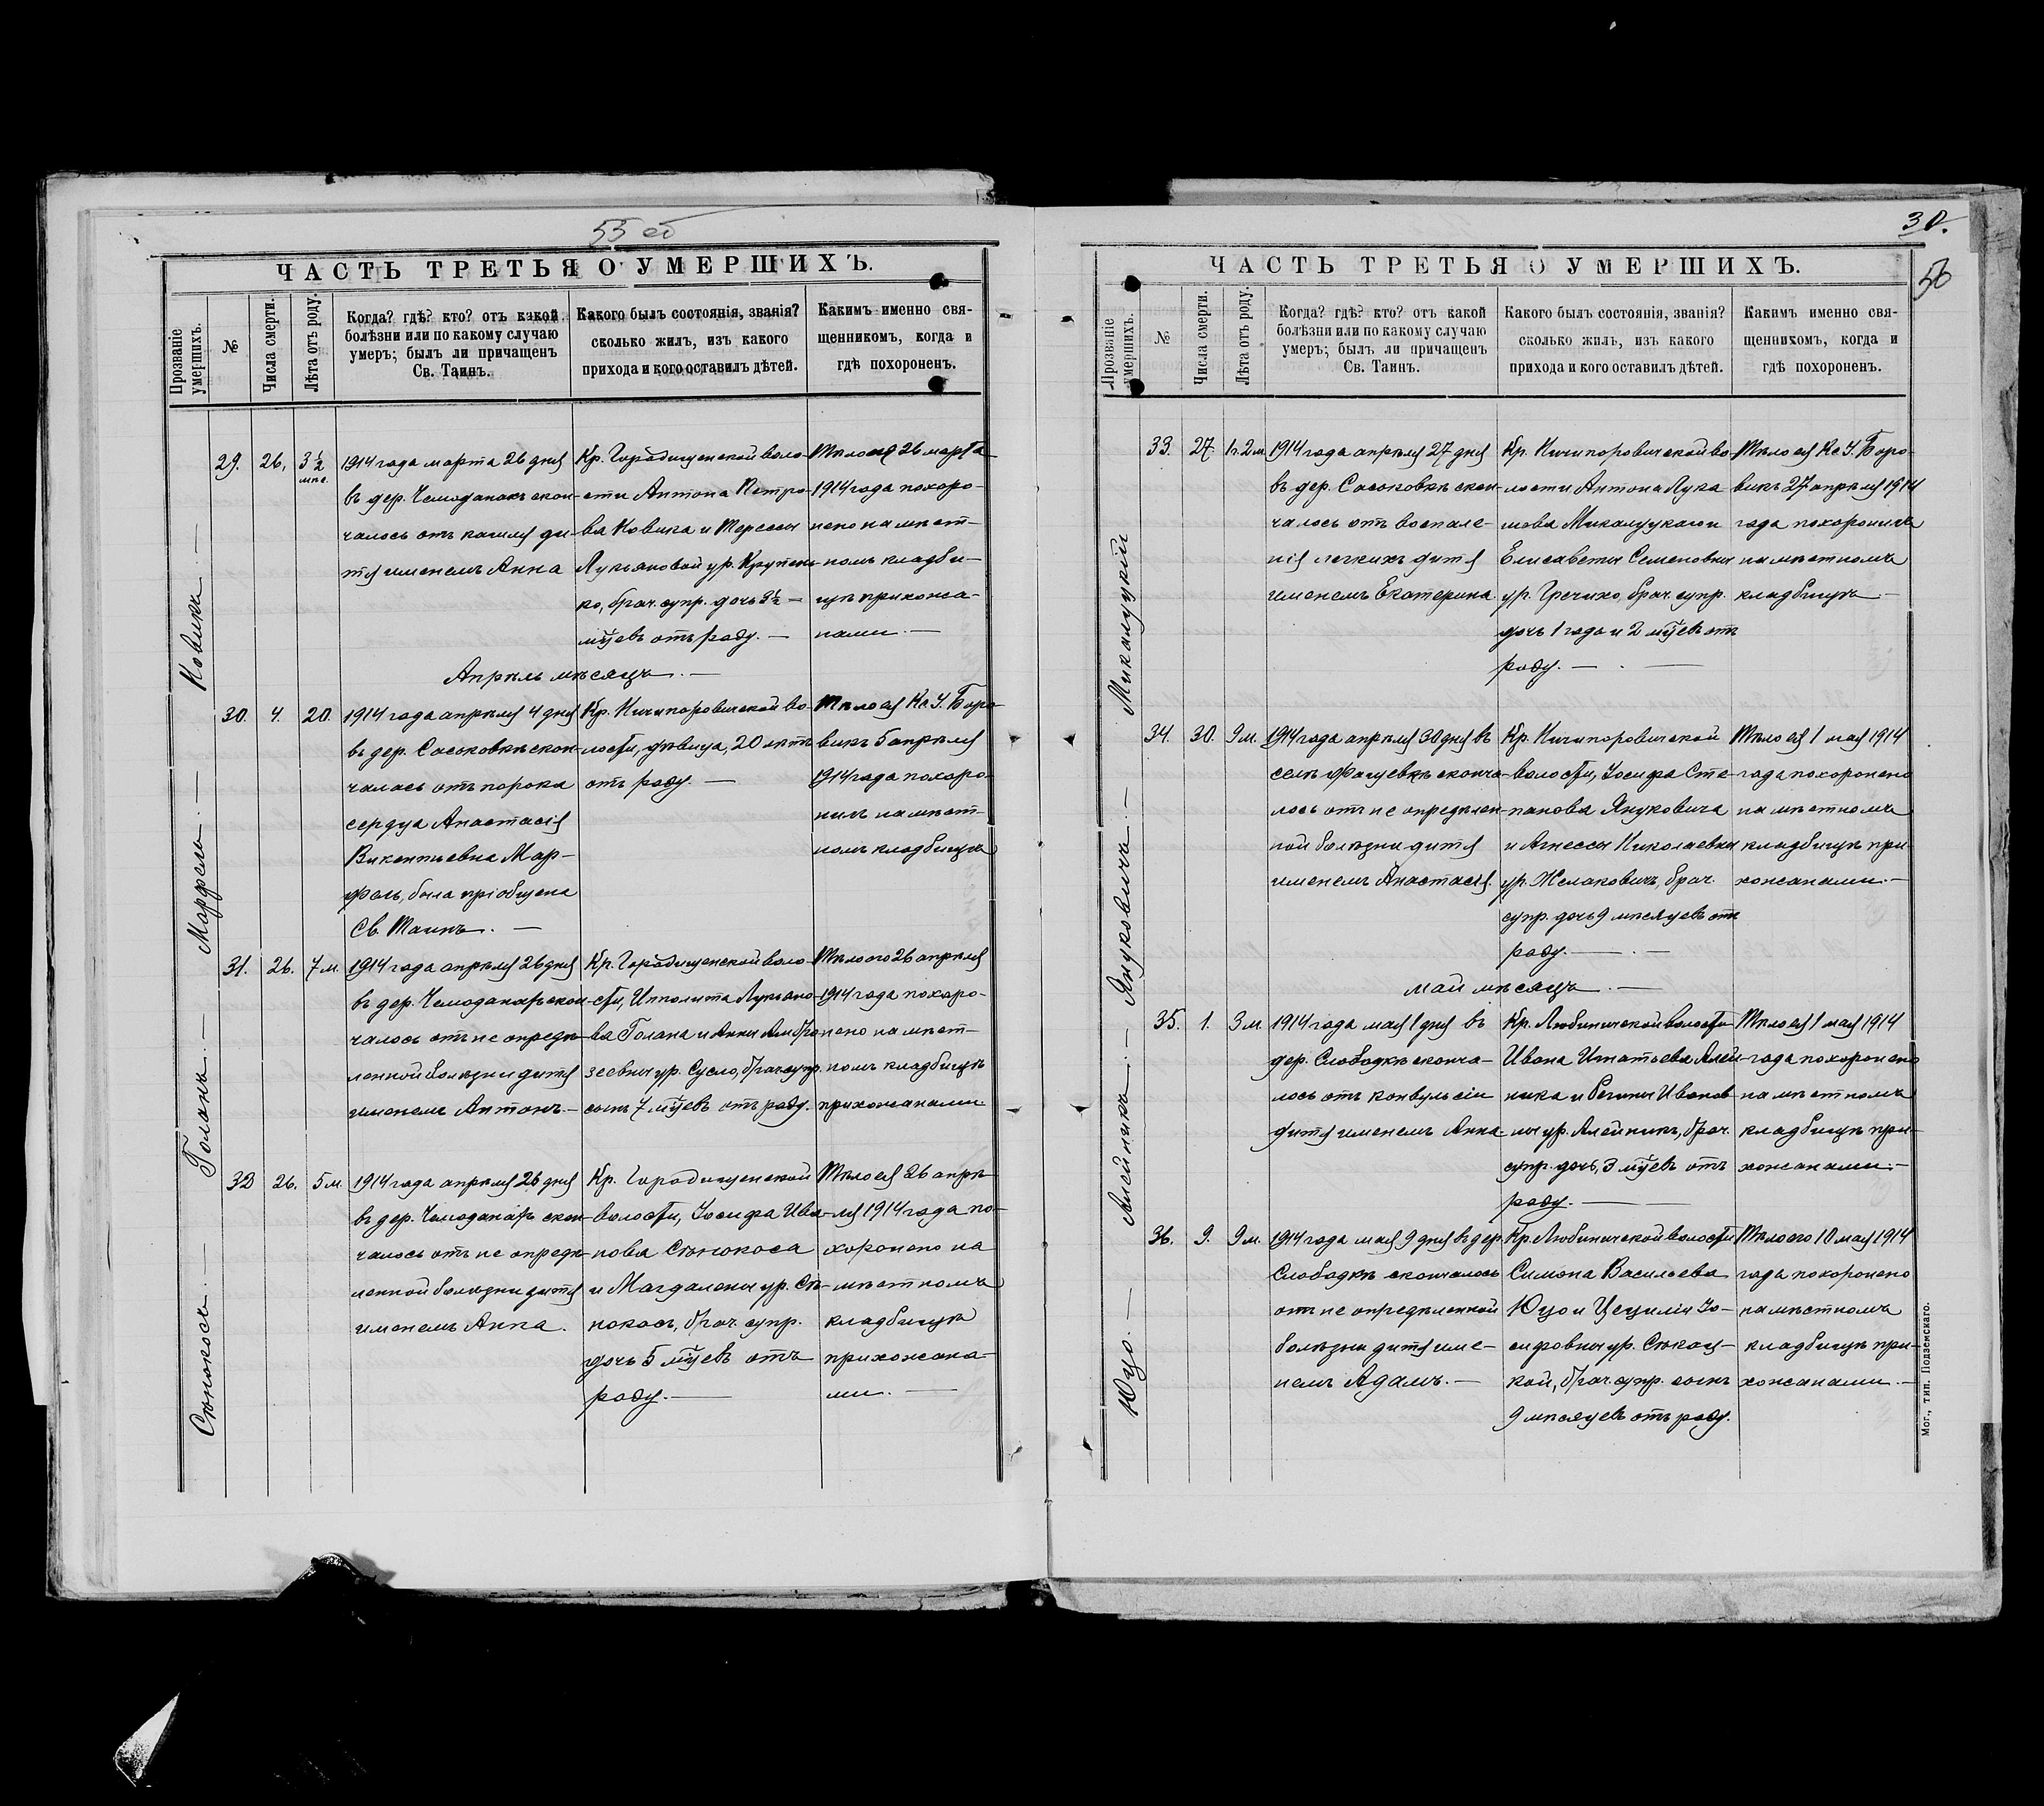 55 об
ЧАСТЬ ТРЕТЬЯ О УМЕРШИХЪ.
Прозваніе умершихъ.
№
Числа смерти.
Лѣта отъ роду.
Когда? гдѣ? кто? отъ какой
болѣзни или по какому случаю
умеръ; былъ ли причащенъ
Св. Таинъ.
Какого былъ состоянія, званія?
сколько жилъ, изъ какого
прихода и кого оставилъ дѣтей.
Каким именно свя-
щенникомъ, когда и
гдѣ похороненъ.
Ковика
29.
26.
3½ мѣс.
1914 года марта 26 дня
въ дер. Чемоданахъ скон-
чалось отъ кашля ди-
тя именемъ Анна
Кр. Городищенской воло-
сти Антона Петро-
ва Ковика и Терессы
Лукьяновой ур. Крупень-
ко, брач. супр. дочь 3½ —
мѣцевъ отъ роду. —
Тѣло ея 26 марта
1914 года похоро-
нено на мѣст-
номъ кладби-
щѣ прихожа-
нами. —
Апрѣль мѣсяцъ. —
Марфель. —
30.
4.
20.
1914 года апрѣля 4 дня
въ дер. Сосновкѣ скон-
чалась отъ порока
сердца Анастасія
Викентьевна Мар-
фель, была пріобщена
Св. Таинъ. —
Кр. Ничипоровичской во-
лости, дѣвица, 20 лѣтъ
отъ роду. —
Тѣло ея Кс. І. Боро-
викъ 5 апрѣля
1914 года похоро-
нилъ на мѣст-
номъ кладбищѣ
Голанъ. —
31.
26.
7 м.
1914 года апрѣля 26 дня
въ дер. Чемоданахъ скон-
чалось отъ не опредѣ-
ленной болѣзни дитя
именемъ Антонъ. —
Кр. Городищенской воло-
сти, Ипполита Лукьяно-
ва Голана и Анны Амбро-
зеевны ур. Сусло, брач. супр.
сынъ 7 мѣцевъ отъ роду.
Тѣло его 26 апрѣля
1914 года похоро-
нено на мѣст-
номъ кладбищѣ
прихожанами
Сѣнокоса. —
32
26.
5 м
1914 года апрѣля 26 дня
въ дер. Чемоданахъ скон-
чалось отъ не опредѣ-
ленной болѣзни дитя
именемъ Анна.
Кр. Городищенской
волости, Іосифа Ива-
нова Сѣнокоса
и Магдалены ур. Сѣ-
нокосъ, брач. супр.
дочь 5 мѣцевъ отъ
роду. —
Тѣло ея 26 апрѣ-
ля 1914 года по-
хоронено на
мѣстномъ
кладбищѣ
прихожана-
ми. —
30.
56
ЧАСТЬ ТРЕТЬЯ О УМЕРШИХЪ.
Прозваніе умершихъ.
№
Числа смерти.
Лѣта отъ роду.
Когда? гдѣ? кто? отъ какой
болѣзни или по какому случаю
умеръ; былъ ли причащенъ
Св. Таинъ.
Какого былъ состоянія, званія?
сколько жилъ, изъ какого
прихода и кого оставилъ дѣтей.
Каким именно свя-
щенникомъ, когда и
гдѣ похороненъ.
Микалуцкій
33.
27
1 г. 2 м.
1914 года апрѣля 27 дня
въ дер. Сосновкѣ скон-
чалось отъ воспале-
нія легкихъ дитя
именемъ Екатерина.
Кр. Ничипоровичской во-
лости Антона Лука
шова Микалуцкаго и
Елисаветы Семеновны
ур. Гречихо, брач. супр.
дочь 1 года и 2 мѣцевъ отъ
роду. —
Тѣло ея Кс. І. Боро-
викъ 27 апрѣля 1914
года похоронилъ
на мѣстномъ
кладбищѣ. —
Януковичъ. —
34.
30.
9 м.
1914 года апрѣля 30 дня въ
селѣ Фащевкѣ сконча-
лось отъ не опредѣлен-
ной болѣзни дитя
именемъ Анастасія.
Кр. Ничипоровичской
волости, Іосифа Сте-
панова Януковича
и Агнессы Николаевны
ур. Жемановичъ, брач.
супр. дочь 9 мѣсяцевъ отъ
роду. —
Тѣло ея 1 мая 1914
года похоронено
на мѣстномъ
кладбищѣ при-
хожанами. —
Май мѣсяцъ. —
Алейникъ. —
35.
1.
3 м.
1914 года мая 1 дня въ
дер. Слободкѣ сконча-
лось отъ конвульсіи
дитя именемъ Анна.
Кр. Любиничской волости
Ивана Игнатьева Алей-
ника и Регины Иванов-
ны ур. Алейникъ, брач.
супр. дочь, 3 мѣцевъ отъ
роду. —
Тѣло ея 1 мая 1914
года похоронено
на мѣстномъ
кладбищѣ при-
хожанами. —
Юцо. —
36.
9.
9 м.
1914 года мая 9 дня въ дер.
Слободкѣ скончалось
отъ не опредѣленной
болѣзни дитя име-
немъ Адамъ. —
Кр. Любиничской волости
Симона Васильева
Юцо и Цециліи Іо-
сифовны ур.
брач. супр. сынъ
9 мѣсяцевъ отъ роду.
Тѣло его 10 мая 1914
года похоронено
на мѣстномъ
кладбищѣ при-
хожанами. —
Мог., тип. Подземскаго.